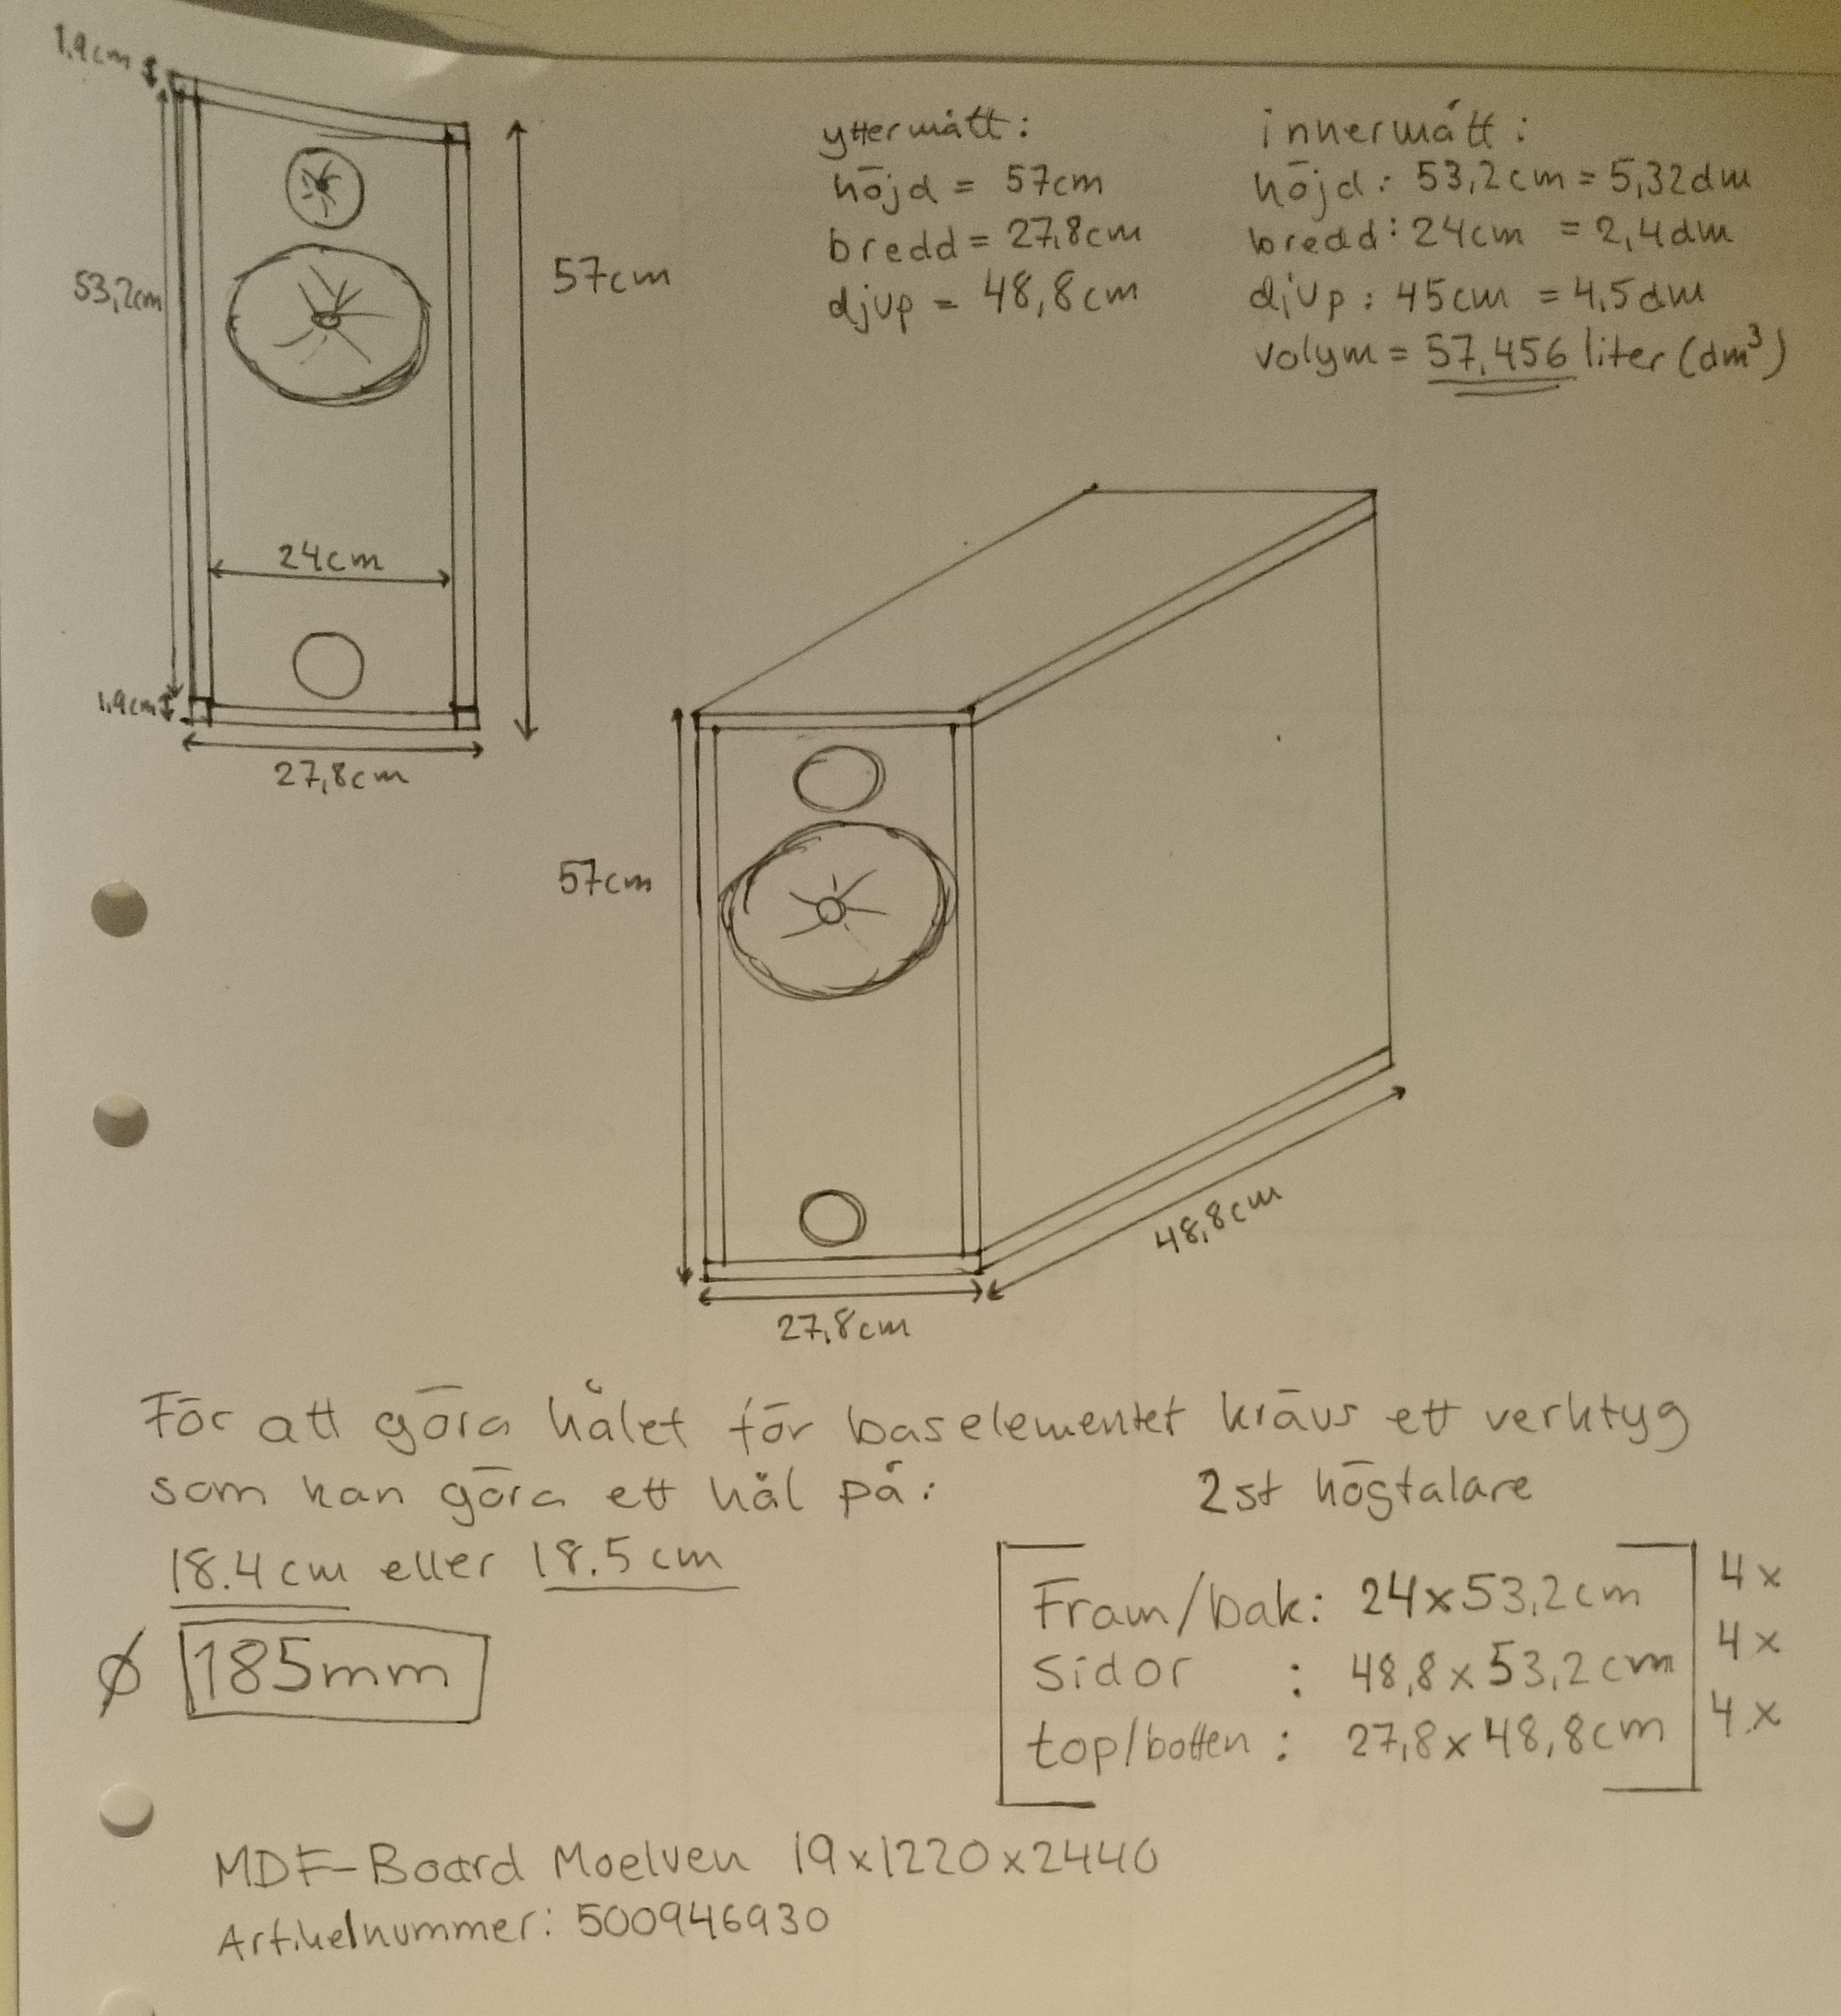 1.9cm
53,2cm
57cm
24cm
1.9cm
27,8cm
yttermått:
höjd = 57cm
bredd = 27,8cm
djup = 48,8cm
innermått:
höjd: 53,2cm = 5,32dm
bredd: 24cm = 2,4dm
djup: 45cm = 4.5dm
volym = 57,456 liter (dm³)
57cm
27,8cm
48,8cm
För att göra hålet för baselementet krävs ett verktyg
som kan göra ett hål på:
18.4cm eller 18.5cm
Ø 185mm
2st högtalare
Fram/bak: 24x53,2cm 4x
Sidor : 48,8x53,2cm 4x
top/botten : 27,8x48,8cm 4x
MDF-Board Moelven 19x1220x2440
Artikelnummer: 500946930